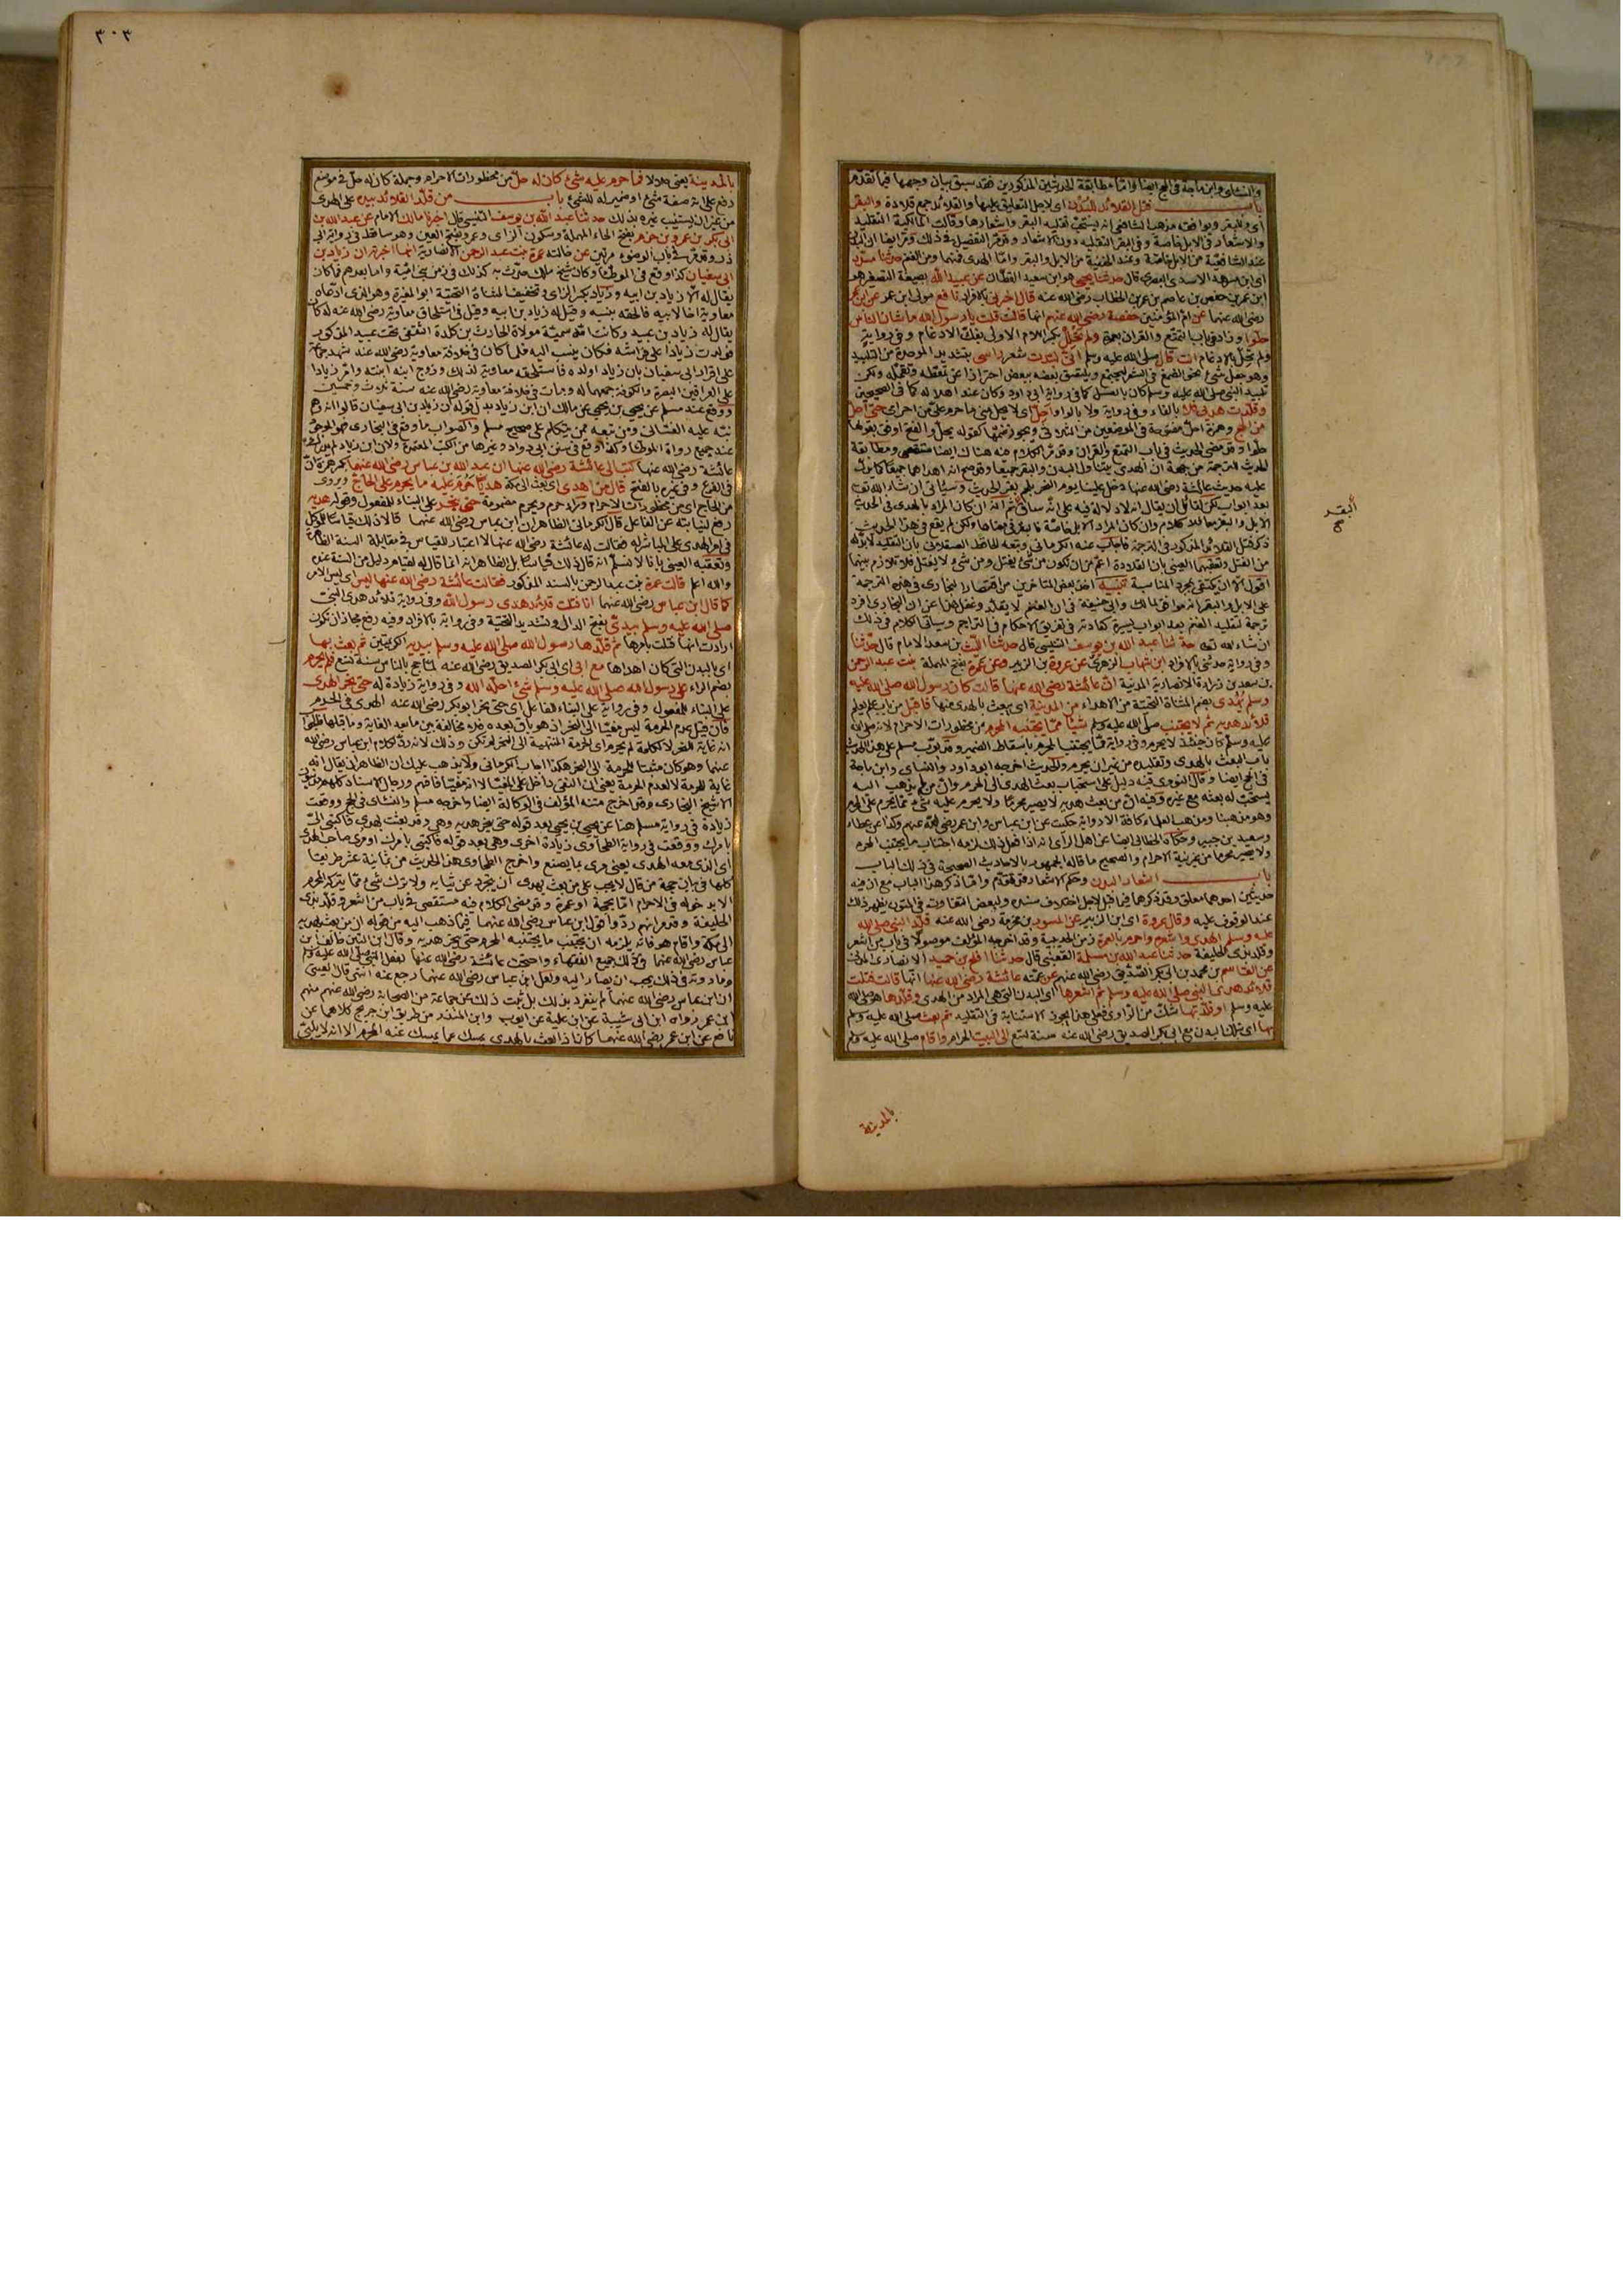 والنسائى وابن ماجة فى الحج ايضا واما مطابقة الحديثين المذكورين فقد سبق بيان وجهها فيما تقدم
باب فتل القلائد للبدن اى لاجل التعليق عليها والقلائد جمع قلادة والبقر
اى وللبقر ويوافقه مذهب الشافعى انه يستحب تقليد البقر واشعارها وقالت المالكية التقليد
والاشعار فى الابل خاصة وفى البقر التقليد دون الاشعار وقد مر التفصيل فى ذلك ومر ايضا ان البدن
عند الشافعية من الابل خاصة وعند الحنفية من الابل والبقر واما الهدى فمنهما ومن الغنم حدثنا مسدد
اى ابن مسرهد الاسدى البصرى قال حدثنا يحيى هو ابن سعيد القطان عن عبيد الله بصيغة التصغير هو
ابن عمر بن حفص بن عاصم بن عمر بن الخطاب رضى الله عنه قال اخبرنى بالافراد نافع مولى ابن عمر عن ابن عمر
رضى الله عنهما عن ام المؤمنين حفصة رضى الله عنهم انها قالت قلت يا رسول الله ما شان الناس
حلوا وزاد فى باب التمتع والقران بعمرة ولم تحلل بكسر اللام الاولى بفك الادغام وفى رواية
ولم تحل بالادغام انت قال صلى الله عليه وسلم انى لبدت شعر راسى بتشديد الموحدة من التلبيد
وهو جعل شئ نحو الصمغ فى الشعر ليجتمع ويلتصق بعضه ببعض احترازا عن تمعطه وتقمله ولكن
تلبيد النبى صلى الله عليه وسلم كان بالعسل كما فى رواية ابى داود وكان عند اهلاله كما فى الصحيحين
وقلدت هديى فلا بالفاء وفى رواية ولا بالواو احل اى لا يحل منى ما حرم على من احرامى حتى احل
من الحج وهمزة احل مفتوحة فى الموضعين من الثلاثى ويجوز ضمها كقوله يحلل والفتح اوفق بقولها
حلوا وقد مضى الحديث فى باب التمتع والقران وقد مر الكلام فيه هناك ايضا مستقصى ومطابقة
الحديث للترجمة من جهة ان الهدى يتناول البدن والبقر جميعا وقد صح انه اهداهما جميعا كما يدل
عليه حديث عائشة رضى الله عنها دخل علينا يوم النحر بلحم بقر الحديث وسيأتى ان شاء الله تعالى
بعد ابواب لكن لقائل ان يقال انه لا دلالة فيه على انه ساق ثم انه ان كان المراد بالهدى فى الحديث
الابل والبقر معا فلا كلام وان كان المراد الابل خاصة فالبقر فى معناها ولكن لم يقع فى هذا الحديث
ذكر فتل القلائد المذكور فى الترجمة فاجاب عنه الكرمانى وتبعه الحافظ العسقلانى بان التقليد لا بد له
من الفتل وتعقبهما العينى بان القلادة اعم من ان تكون من شئ يفتل ومن شئ لا يفتل فلا تلازم بينهما
اقول الا ان يكتفى بمجرد المناسبة تنبيه اخذ بعض المتأخرين من اقتصار البخارى فى هذه الترجمة
على الابل والبقر انه موافق لمالك وابى حنيفة فى ان الغنم لا يقلد وغفل هذا عن ان البخارى افرد
ترجمة لتقليد الغنم بعد ابواب يسيرة كعادته فى تفريق الاحكام فى التراجم وسيأتى الكلام فى ذلك
ان شاء الله تعالى حدثنا عبد الله بن يوسف التنيسى قال حدثنا الليث بن سعد الامام قال حدثنا
وفى رواية حدثنى بالافراد ابن شهاب الزهرى عن عروة بن الزبير وعن عمرة بفتح المهملة بنت عبد الرحمن
بن سعد بن زرارة الانصارية المدنية ان عائشة رضى الله عنها قالت كان رسول الله صلى الله عليه
وسلم يهدى بضم المثناة التحتية من الاهداء من المدينة اى يبعث بالهدى منها فافتل من باب علم يعلم
قلائد هديه ثم لا يجتنب صلى الله عليه وسلم شيئا مما يجتنبه المحرم من محظورات الاحرام لانه صلى الله
عليه وسلم كان حينئذ لا يحرم وفى رواية مما يجتنب المحرم باسقاط الضمير وقد بوب مسلم على هذا الحديث
باب البعث بالهدى وتقليده من غير ان يحرم والحديث اخرجه ابو داود والنسائى وابن ماجة
فى الحج ايضا وقال النووى فيه دليل على استحباب بعث الهدى الى الحرم وان من لم يذهب اليه
يستحب له بعثه مع غيره وفيه ان من بعث هديه لا يصير محرما ولا يحرم عليه شئ مما يحرم على المحرم
وهو مذهبنا ومذهب العلماء كافة الا رواية حكيت عن ابن عباس وابن عمر رضى الله عنهم وكذا عن عطاء
وسعيد بن جبير وحكاه الخطابى ايضا عن اهل الرأى انه اذا فعل ذلك لزمه اجتناب ما يجتنب المحرم
ولا يصير محرما من غير نية الاحرام والصحيح ما قاله الجمهور بالاحاديث الصحيحة فى ذلك الباب
باب اشعار البدن وحكم الاشعار قد تقدم وانما ذكر هذا الباب مع ان فيه
حديثين احدهما معلق وقد ذكرهما فيما قبل لاجل اختلاف سنده ولبعض التفاوت فى المتون يظهر ذلك
عند الوقوف عليه وقال عروة اى ابن الزبير عن المسور بن مخرمة رضى الله عنه قلد النبى صلى الله
عليه وسلم الهدى واشعره واحرم بالعمرة زمن الحديبية وقد اخرجه المؤلف موصولا فى باب من اشعر
وقلد بذى الحليفة حدثنا عبد الله بن مسلمة القعنبى قال حدثنا افلح بن حميد الانصارى المدنى
عن القاسم بن محمد بن ابى بكر الصديق رضى الله عنهم عن عمته عائشة رضى الله عنها انها قالت فتلت
قلائد هدى النبى صلى الله عليه وسلم ثم اشعرها اى البدن التى هى المراد من الهدى وقلدها هو صلى الله
عليه وسلم او قلدتها شك من الراوى فعلى هذا يجوز الاستنابة فى التقليد ثم بعث صلى الله عليه وسلم
بها اى بتلك البدن مع ابى بكر الصديق رضى الله عنه سنة تسع الى البيت الحرام واقام صلى الله عليه وسلم
البقر
بالمدينة
٣٠٣
بالمدينة يعنى حلالا فما حرم عليه شئ كان له حل من محظورات الاحرام وجملة كان له حل فى موضع
رفع على انه صفة شئ او ضمير له للشئ باب من قلد القلائد بيده على الهدى
من غير ان يستنيب غيره بذلك حدثنا عبد الله بن يوسف التنيسى قال اخبرنا مالك الامام عن عبد الله بن
ابى بكر بن عمرو بن حزم بفتح الحاء المهملة وسكون الزاى وعمرو بفتح العين وهو ساقط فى رواية ابى
ذر وقد مر فى باب الوضوء مرتين عن خالته عمرة بنت عبد الرحمن الانصارية انها اخبرته ان زياد بن
ابى سفيان كذا وقع فى الموطأ وكان شيخ مالك حدث به كذلك فى زمن بنى امية واما بعدهم فما كان
يقال له الا زياد بن ابيه وزياد بكسر الزاى وتخفيف المثناة التحتية ابو المغيرة وهو الذى ادعاه
معاوية اخا لابيه فالحقه بنسبه وقيل له زياد بن ابيه وقيل فى استلحاق معاوية رضى الله عنه له كان
يقال له زياد بن عبيد وكانت امه سمية مولاة الحارث بن كلدة الثقفى تحت عبيد المذكور
فولدت زيادا على فراشه فكان ينسب اليه فلما كان فى خلافة معاوية رضى الله عنه شهد جماعة
على اقرار ابى سفيان بان زياد اولده فاستلحقه معاوية لذلك وزوج ابنه ابنته وامر زيادا
على العراقين البصرة والكوفة جمعهما له ومات فى خلافة معاوية رضى الله عنه سنة ثلاث وخمسين
ووقع عند مسلم عن يحيى بن يحيى عن مالك ان ابن زياد بدل قوله ان زياد بن ابى سفيان قالوا انه وهم
نبه عليه الغسانى ومن تبعه ممن يتكلم على صحيح مسلم والصواب ما وقع فى البخارى هو الموجود
عند جميع رواة الموطأ وكذا وقع فى سنن ابى داود وغيرها من الكتب المعتمدة ولان ابن زياد لم يدرك
عائشة رضى الله عنها كتب الى عائشة رضى الله عنها ان عبد الله بن عباس رضى الله عنهما بكسر همزة ان
فى الفرع وفى غيره بالفتح قال من اهدى اى بعث الى مكة هديا حرم عليه ما يحرم على الحاج ويروى
من الحاج اى من محظورات الاحرام وراء حرم ويحرم مضمومة حتى ينحر على البناء للمفعول وقوله هديه
رفع لنيابته عن الفاعل قال الكرمانى الظاهر ان ابن عباس رضى الله عنهما قال ذلك قياسا للتوكيل
فى امر الهدى على المباشر له فقالت له عائشة رضى الله عنها لا اعتبار للقياس فى مقابلة السنة الظاهرة
وتعقبه العينى بانا لا نسلم انه قال ذلك قياسا بل الظاهر انه انما قاله لقيام دليل من السنة عنده
والله اعلم قالت عمرة بنت عبد الرحمن بالسند المذكور فقالت عائشة رضى الله عنها ليس اى ليس الامر
كما قال ابن عباس رضى الله عنهما انا فتلت قلائد هدى رسول الله وفى رواية قلائد هدى النبى
صلى الله عليه وسلم بيدى بفتح الدال وتشديد التحتية وفى رواية بالافراد وفيه رفع مجاز ان تكون
ارادت انها فتلت بامرها ثم قلدها رسول الله صلى الله عليه وسلم بيديه الكريمتين ثم بعث بها
اى بالبدن التى كان اهداها مع ابى اى ابى بكر الصديق رضى الله عنه لما حج بالناس سنة تسع فلم يحرم
بضم الراء على رسول الله صلى الله عليه وسلم شئ احله الله وفى رواية زيادة له حتى نحر الهدى
على البناء للمفعول وفى رواية على البناء للفاعل اى حتى نحر ابو بكر رضى الله عنه الهدى فى الحرم
فان قيل عدم الحرمة ليس مغيا الى النحر اذ هو باق بعده فلا مخالفة بين ما بعد الغاية وما قبلها فالجواب
انه غاية لنحر لا لكلمة لم يحرم اى الحرمة المنتهية الى النحر لم تكن وذلك لانه رد لكلام ابن عباس رضى الله
عنهما وهو كان مثبتا للحرمة الى النحر هكذا اجاب الكرمانى ولا يذهب عليك ان الظاهر ان يقال انه
غاية للحرمة لا لعدم الحرمة يعنى ان النفى داخل على المغيا لا انه مغيا فافهم ورجال الاسناد كلهم مدنيون
الا شيخ البخارى وقد اخرج متنه المؤلف فى الوكالة ايضا واخرجه مسلم والنسائى فى الحج ووقعت
زيادة فى رواية مسلم هنا عن يحيى بن يحيى بعد قوله حتى ينحر هديه وهى وقد بعثت بهدى فاكتبى الى
بامرك ووقعت فى رواية الطحاوى زيادة اخرى وهى بعد قوله فاكتبى بامرك او مرى صاحب الهدى
اى الذى معه الهدى يعنى مرى بما يصنع واخرج الطحاوى هذا الحديث من ثمانية عشر طريقا
كلها فى بيان حجة من قال لا يجب على من بعث بهدى ان يتجرد عن ثيابه ولا ترك شئ مما يتركه المحرم
الا بدخوله فى الاحرام اما بحجة او عمرة وقد مضى الكلام فيه مستقصى فى باب من اشعر وقلد بذى
الحليفة وقد مر انهم ردوا قول ابن عباس رضى الله عنهما فيما ذهب اليه من قوله ان من بعث بهديه
الى مكة واقام هو فانه يلزمه ان يجتنب ما يجتنبه المحرم حتى ينحر هديه وقال ابن التين خالف ابن
عباس رضى الله عنهما فى ذلك جميع الفقهاء واحتجت عائشة رضى الله عنها بفعل النبى صلى الله عليه وسلم
وما روته فى ذلك يجب ان يصار اليه ولعل ابن عباس رضى الله عنهما رجع عنه انتهى قال العينى
ان ابن عباس رضى الله عنهما لم ينفرد بذلك بل ثبت ذلك عن جماعة من الصحابة رضى الله عنهم منهم
ابن عمر رواه ابن ابى شيبة عن ابن علية عن ايوب وابن المنذر من طريق ابن جريج كلاهما عن
نافع عن ابن عمر رضى الله عنهما كان اذا بعث بالهدى يمسك عما يمسك عنه المحرم الا انه لا يلبى